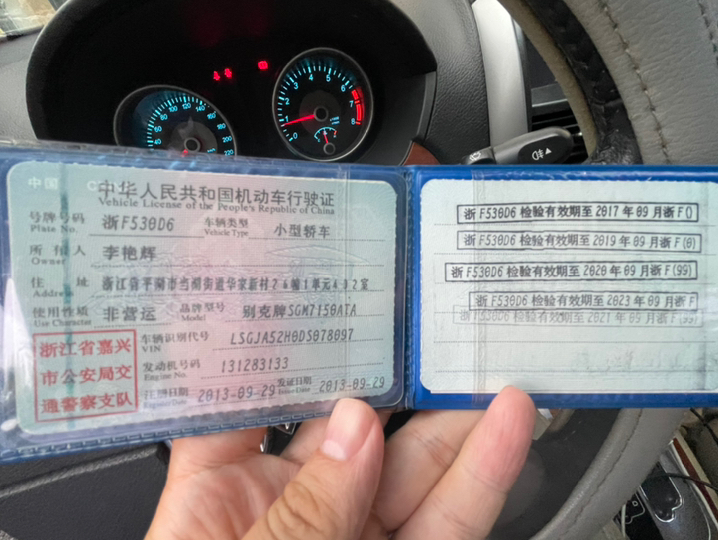 中华人民共和国机动车行驶证
Vehicle License of the People's Republic of China
号牌号码 Plate No. 浙F530D6 车辆类型 Vehicle Type 小型轿车
所有人 Owner 李艳辉
住址 Address 浙江省平湖市当湖街道华家新村26幢1单元402室
使用性质 Use Character 非营运 品牌型号 Model 别克牌SGM7150ATA
浙江省嘉兴
市公安局交
通警察支队
车辆识别代号 VIN LSGJA52H0DS078097
发动机号码 Engine No. 131283133
注册日期 Register Date 2013-09-29 发证日期 Issue Date 2013-09-29
浙F530D6 检验有效期至2017年09月浙F()
浙F530D6 检验有效期至2019年09月浙F(0)
浙F530D6 检验有效期至2020年09月浙F(99)
浙F530D6 检验有效期至2023年09月浙F
浙F530D6 检验有效期至2021年09月浙F(99)